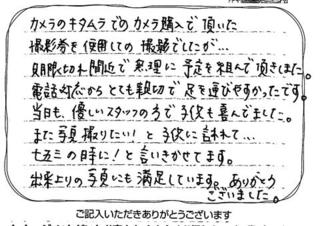 カメラのキタムラでのカメラ購入で頂いた
撮影券を使用しての撮影でしたが…
期限切れ間近で急遽に予定を組んで頂きました。
電話対応からとても親切で足を運びやすかったです。
当日も、優しいスタッフの方で子供も喜んでました。
また写真撮りたい!と子供に言われて…
七五三の時に!と言いきかせてます。
出来上りの写真にも満足しています。ありがとう
ございました。
ご記入いただきありがとうございます